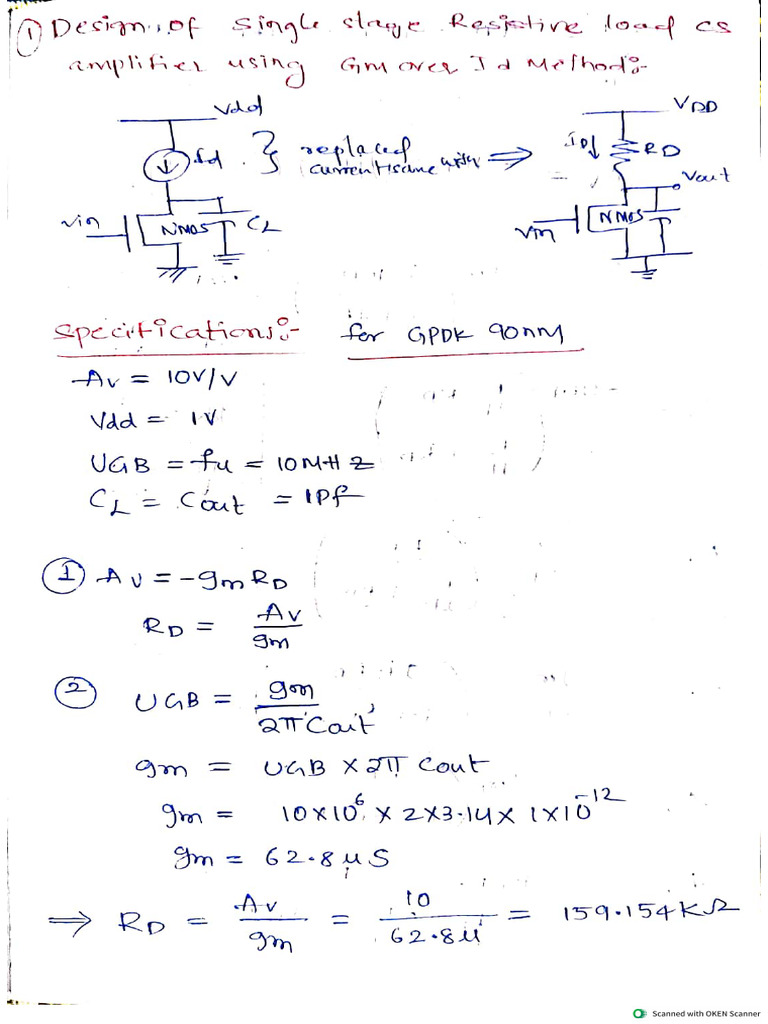 ① Design of single stage Resistive load CS
amplifier using Gm over Id Method:-
Vdd
Id
Vin
NMOS
CL
replaced
current
⇒
VDD
ID↓
RD
Vout
Vin
NMOS
Specifications:- for GPDK 90nM
Av = 10V/V
Vdd = 1V
UGB = fu = 10MHz
CL = Cout = 1Pf
① Av = -gm RD
RD = Av/gm
② UGB = gm/2π Cout
gm = UGB × 2π Cout
gm = 10×10^6 × 2×3.14× 1×10^-12
gm = 62.8 μS
⇒ RD = Av/gm = 10/62.8μ = 159.154KΩ
Scanned with OKEN Scanner